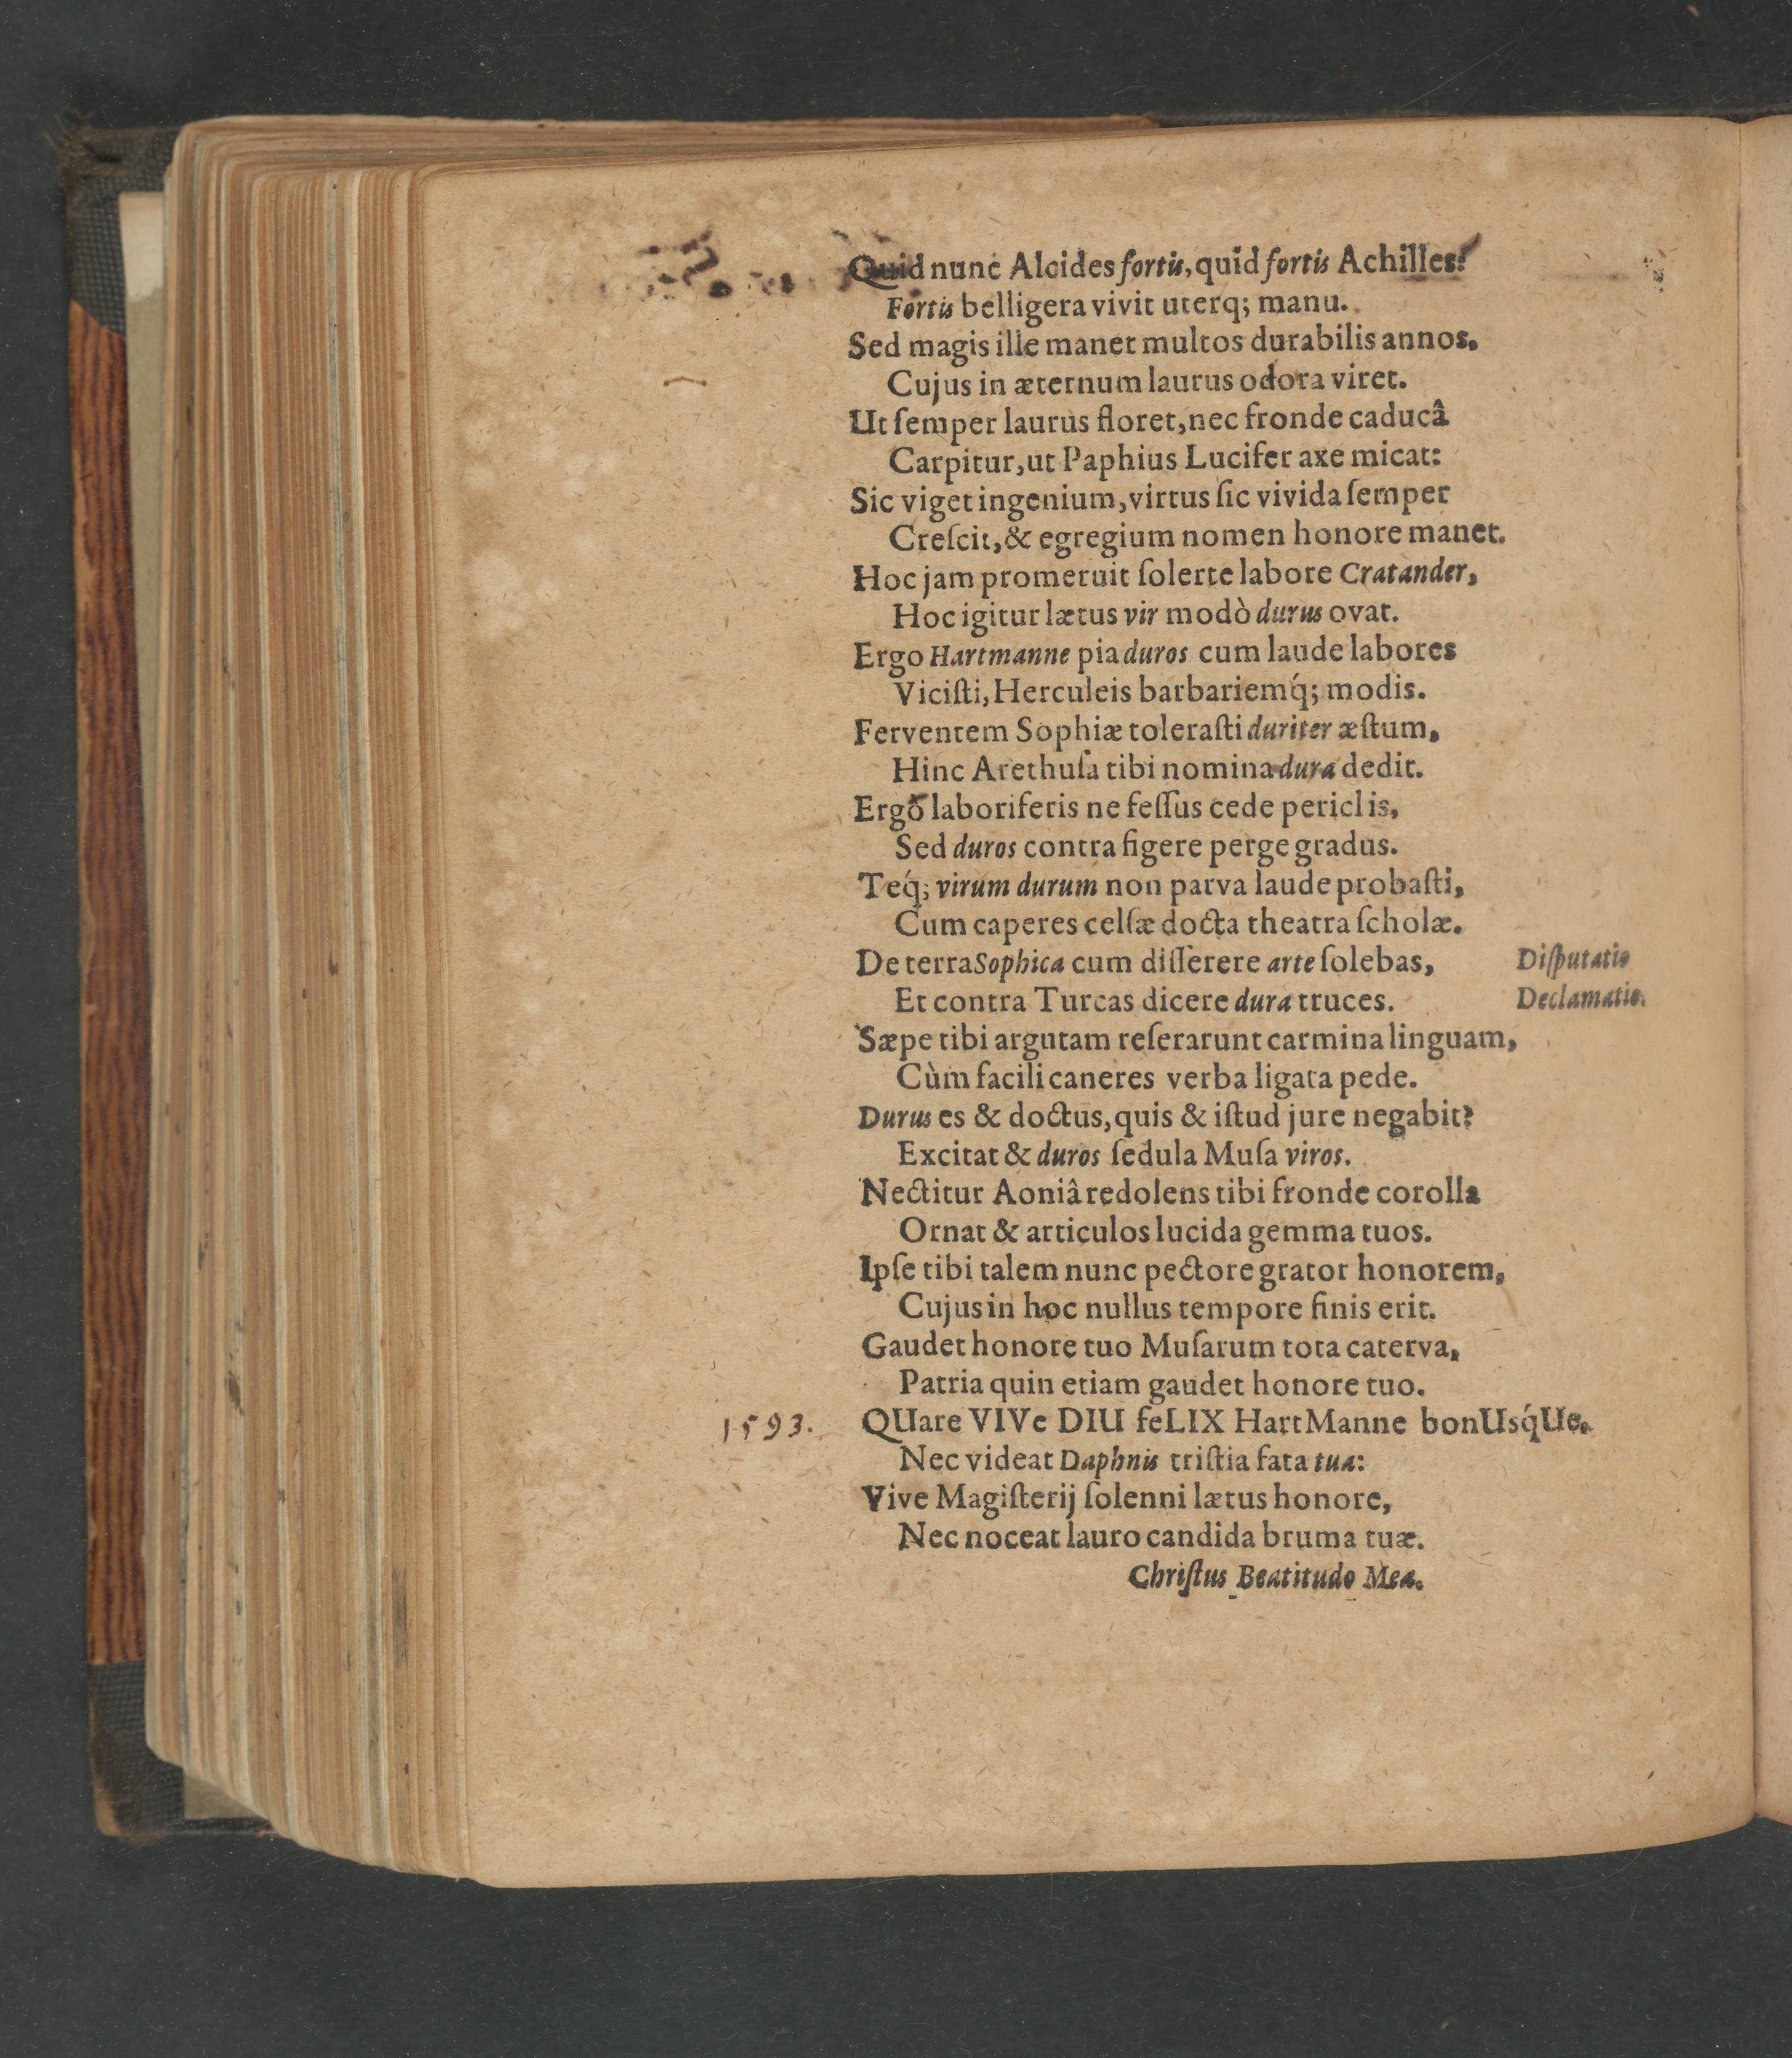 Quid nunc Alcides fortis, quid fortis Achilles?
Fortis belligera vivit uterq; manu.
Sed magis ille manet multos durabilis annos,
Cujus in æternum laurus odora viret.
Ut ſemper laurus floret, nec fronde caducâ
Carpitur, ut Paphius Lucifer axe micat:
Sic viget ingenium, virtus ſic vivida ſemper
Creſcit, & egregium nomen honore manet.
Hoc jam promeruit ſolerte labore Cratander,
Hoc igitur lætus vir modò durus ovat.
Ergo Hartmanne pia duros cum laude labores
Viciſti, Herculeis barbariemq́; modis.
Ferventem Sophiæ toleraſti duriter æſtum,
Hinc Arethuſa tibi nomina dura dedit.
Ergò laboriferis ne feſſus cede periclis,
Sed duros contra figere perge gradus.
Teq́; virum durum non parva laude probaſti,
Cum caperes celſæ docta theatra ſcholæ.
De terra Sophica cum diſſerere arte ſolebas, Diſputatio
Et contra Turcas dicere dura truces. Declamatio.
Sæpe tibi argutam reſerarunt carmina linguam,
Cùm facili caneres verba ligata pede.
Durus es & doctus, quis & iſtud jure negabit?
Excitat & duros ſedula Muſa viros.
Nectitur Aoniâ redolens tibi fronde corolla
Ornat & articulos lucida gemma tuos.
Ipſe tibi talem nunc pectore grator honorem,
Cujus in hoc nullus tempore finis erit.
Gaudet honore tuo Muſarum tota caterva,
Patria quin etiam gaudet honore tuo.
1593. QUare VIVe DIU feLIX HartManne bonUsq́Ue,
Nec videat Daphnis triſtia fata tua:
Vive Magiſterij ſolenni lætus honore,
Nec noceat lauro candida bruma tuæ.
Chriſtus Beatitudo Mea.